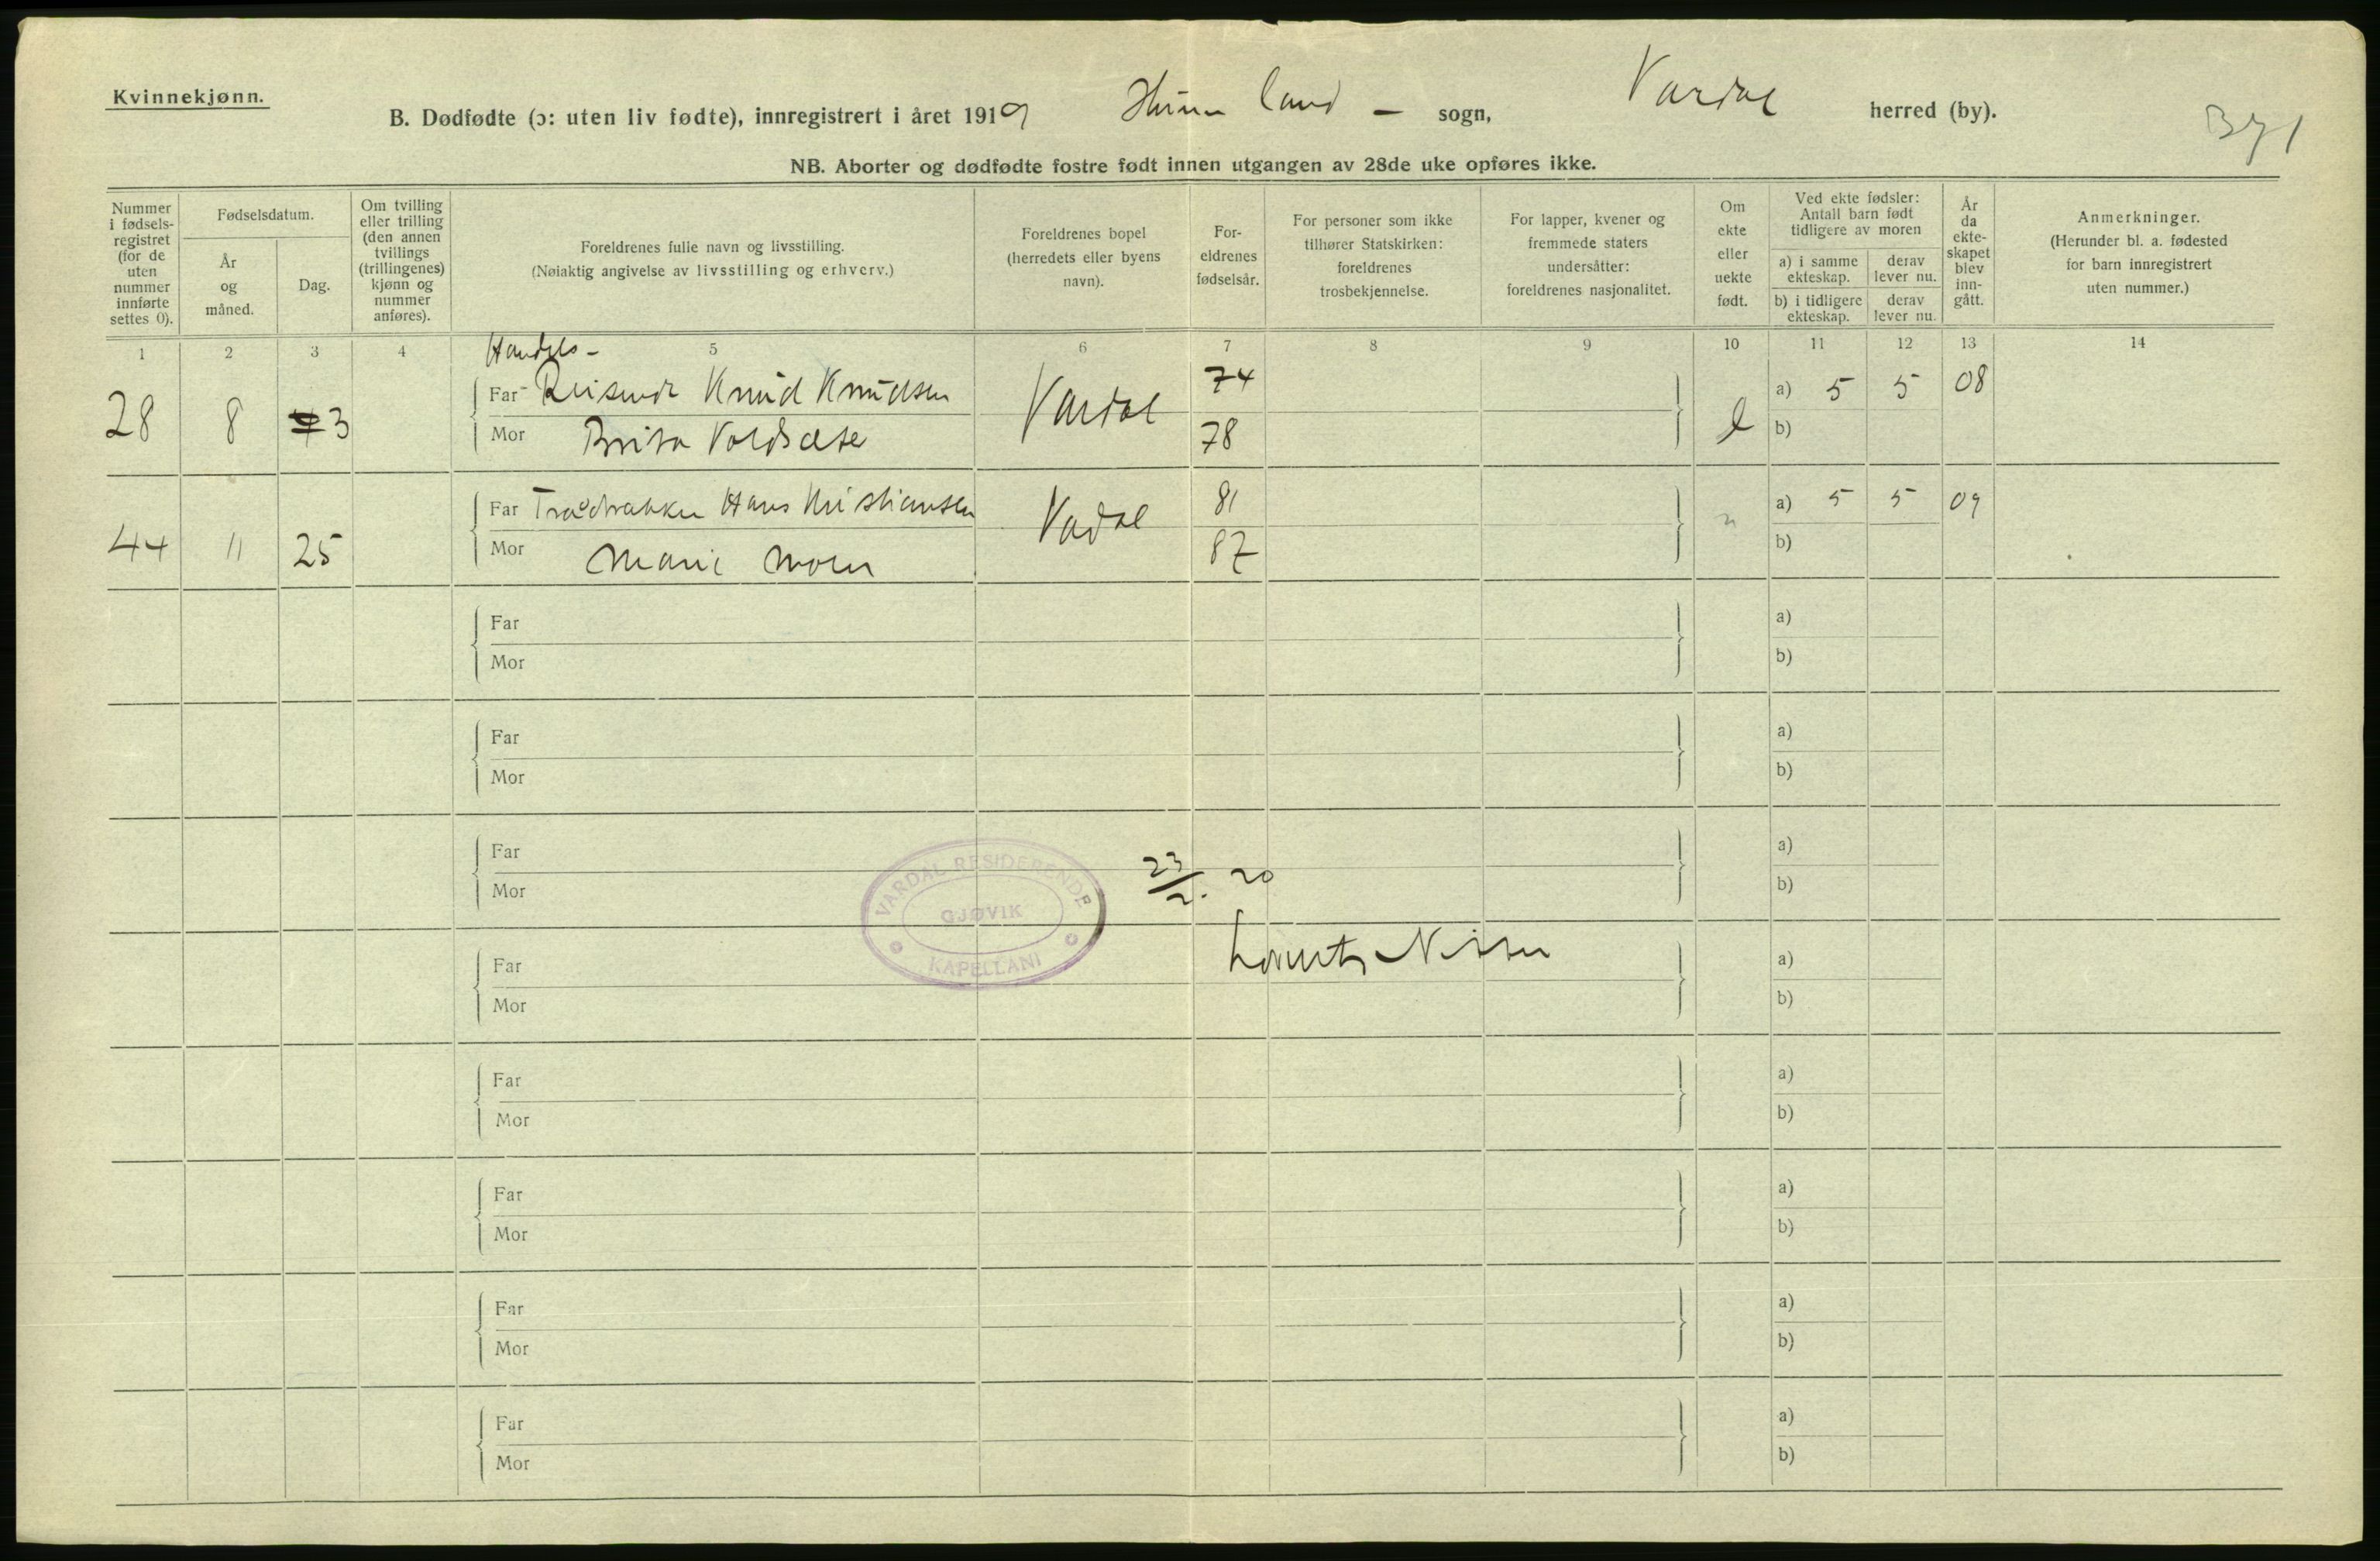 Kvinnekjønn.
B. Dødfødte (ɔ: uten liv fødte), innregistrert i året 1919 Hunn land — sogn, Vardal herred (by).
371
NB. Aborter og dødfødte fostre født innen utgangen av 28de uke opføres ikke.
Nummer i fødsels-registret (for de uten nummer innførte settes 0).
Fødselsdatum.
År og måned.
Dag.
Om tvilling eller trilling (den annen tvillings (trillingenes) kjønn og nummer anføres).
Foreldrenes fulle navn og livsstilling.
(Nøiaktig angivelse av livsstilling og erhverv.)
Foreldrenes bopel (herredets eller byens navn).
For-eldrenes fødselsår.
For personer som ikke tilhører Statskirken: foreldrenes trosbekjennelse.
For lapper, kvener og fremmede staters undersåtter: foreldrenes nasjonalitet.
Om ekte eller uekte født.
Ved ekte fødsler: Antall barn født tidligere av moren
a) i samme ekteskap.
derav lever nu.
b) i tidligere ekteskap.
derav lever nu.
År da ekte-skapet blev inn-gått.
Anmerkninger.
(Herunder bl. a. fødested for barn innregistrert uten nummer.)
1 2 3 4 5 6 7 8 9 10 11 12 13 14
Handels-
28 8 3 Far Reisende Knud Knudsen Vardal 74 e a) 5 5 08
Mor Brita Voldsæte 78 b)
44 11 25 Far Trådtrakker Hans Kristiansen Vadal 81 " a) 5 5 09
Mor Marie Moen 87 b)
Far a)
Mor b)
Far a)
Mor b)
Far a)
Mor b)
VARDAL RESIDERENDE
GJØVIK
KAPELLANI
23/2. 20
Far a)
Mor b)
Nissen
Far a)
Mor b)
Far a)
Mor b)
Far a)
Mor b)
Far a)
Mor b)